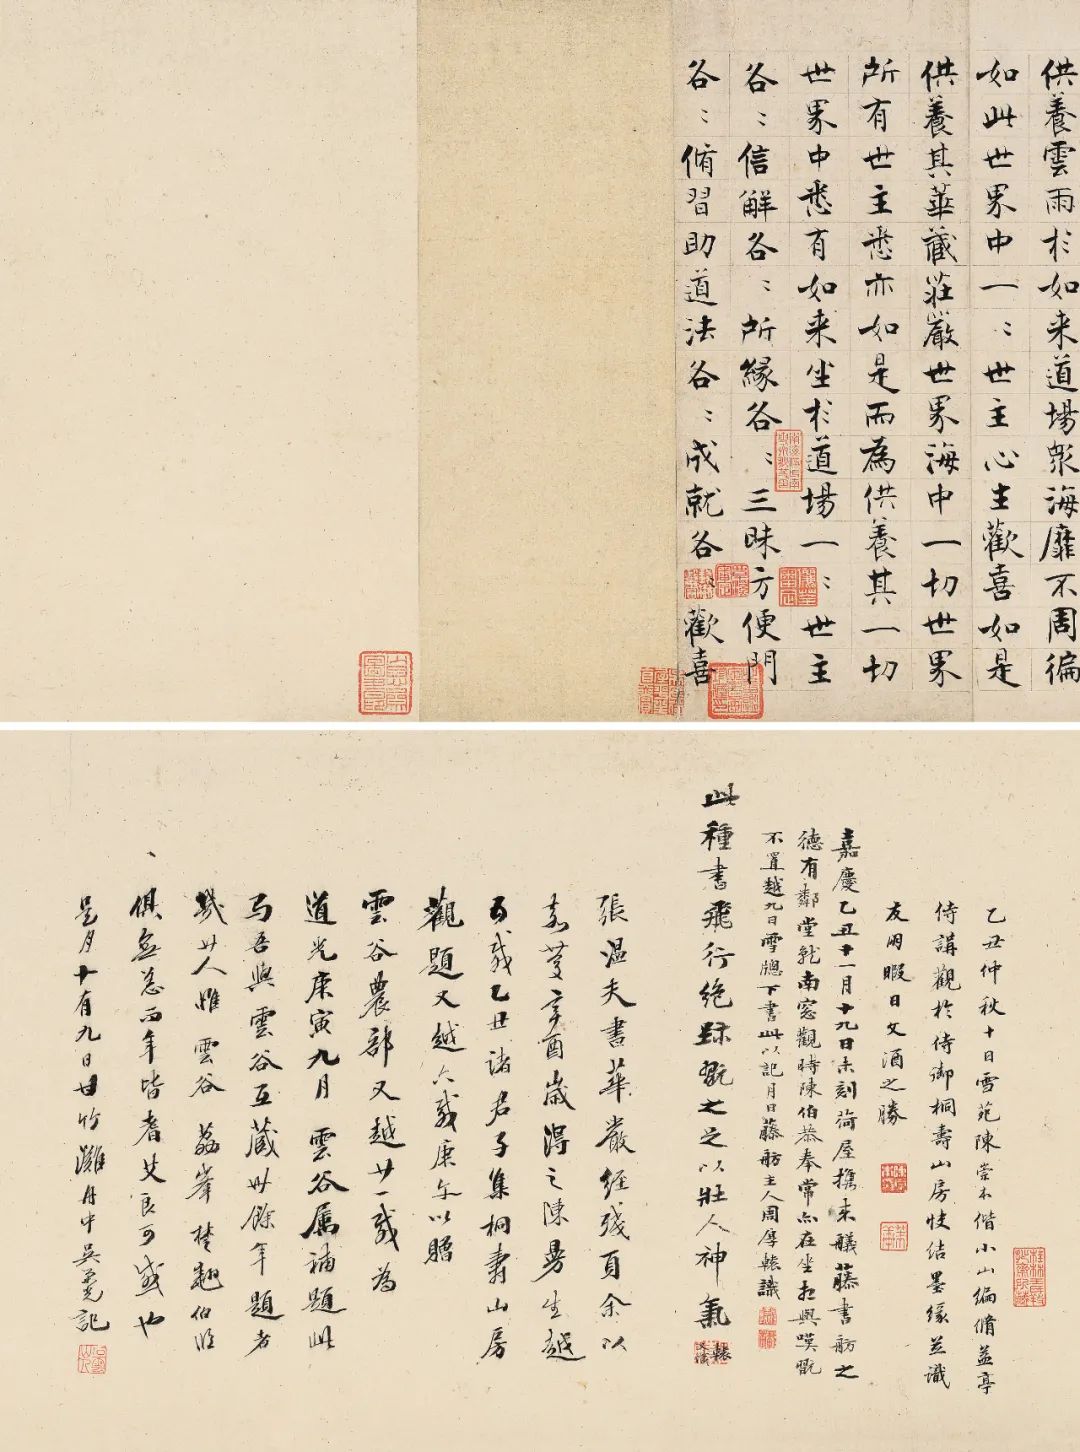 供養雲雨於如来道場衆海靡不周徧
如此世界中一〻世主心生歡喜如是
供養其華藏莊嚴世界海中一切世界
所有世主悉亦如是而為供養其一切
世界中悉有如来坐於道場一〻世主
各〻信解各〻所縁各〻三昧方便門
各〻脩習助道法各〻成就各〻歡喜
乙丑仲秋十日雪苑陳崇本偕小山編脩益亭
侍講觀於侍御桐壽山房快結墨緣並識
友朋暇日文酒之勝
嘉慶乙丑十一月十九日未刻荷屋携来艤藤書舫之
德有鄰堂就南窓觀時陳伯恭奉常亦在坐相與嘆翫
不置越九日雪牕下書此以記月日藤舫主人周厚轅識
此種書飛行絶跡翫之足以壯人神氣
轅
張温夫書華嚴經殘頁余以
嘉慶辛酉歲得之陳曼生越
五載乙丑諸君子集桐壽山房
觀題又越六載庚午以贈
雲谷農部又越廿一載為
道光庚寅九月雲谷属補題此
蓋吾與雲谷互藏卅餘年題者
幾廿人惟雲谷荔峯楚翹伯臨
俱無恙而年皆耆艾良可感也
是月十有九日甘竹灘舟中吳榮光記